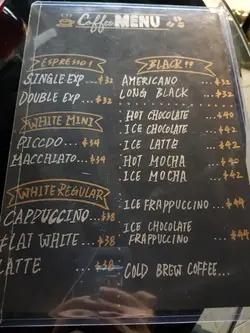 Coffee MENU
ESPRESSO!
SINGLE EXP ...$32
DOUBLE EXP ...$32
WHITE MINI
PICCOO ...$34
MACCHIATO...$34
WHITE REGULAR
CAPPUCCINO...$38
FLAT WHITE ...$38
LATTE ...$38
BLACK!!
AMERICANO ...$32
LONG BLACK ...$32
HOT CHOCOLATE ...$40
ICE CHOCOLATE ...$42
ICE LATTE ...$42
HOT MOCHA ...$40
ICE MOCHA ...$42
ICE FRAPPUCCINO ...$44
ICE CHOCOLATE
FRAPPUCCINO ...$44
COLD BREW COFFEE...